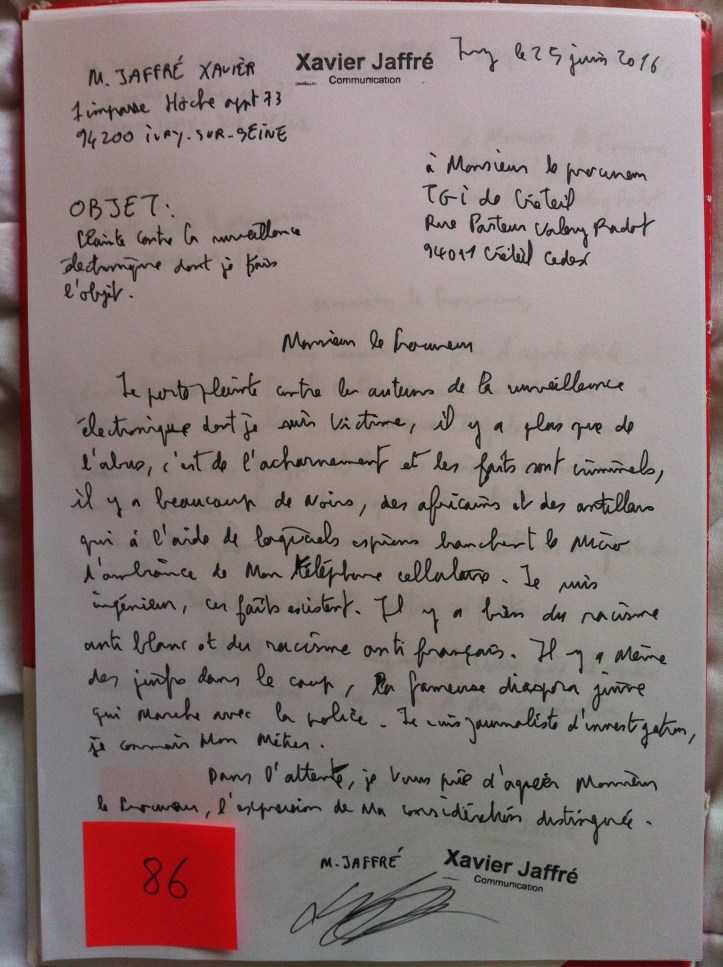 M. JAFFRÉ XAVIER
1 impasse Hoche appt 73
94200 iVRY-SUR-SEiNE
Xavier Jaffré
Communication
Ivry le 25 juin 2016
à Monsieur le procureur
TGi de Créteil
Rue Pasteur Valery Radot
94011 Créteil Cedex
OBJET:
Plainte contre la surveillance
électronique dont je fais
l'objet.
Monsieur le Procureur
Je porte plainte contre les auteurs de la surveillance
électronique dont je suis victime, il y a plus que de
l'abus, c'est de l'acharnement et les faits sont criminels,
il y a beaucoup de Noirs, des africains et des antillais
qui à l'aide de logiciels espions branchent le Micro
d'ambiance de Mon téléphone cellulaire. Je suis
ingénieur, ces faits existent. Il y a bien du racisme
anti blanc et du racisme anti français. Il y a même
des juifs dans le coup, la fameuse diaspora juive
qui marche avec la police. Je suis journaliste d'investigation,
je connais Mon Métier.
Dans l'attente, je vous prie d'agréer Monsieur
le Procureur, l'expression de Ma considération distinguée.
M. JAFFRÉ
Xavier Jaffré
Communication
86